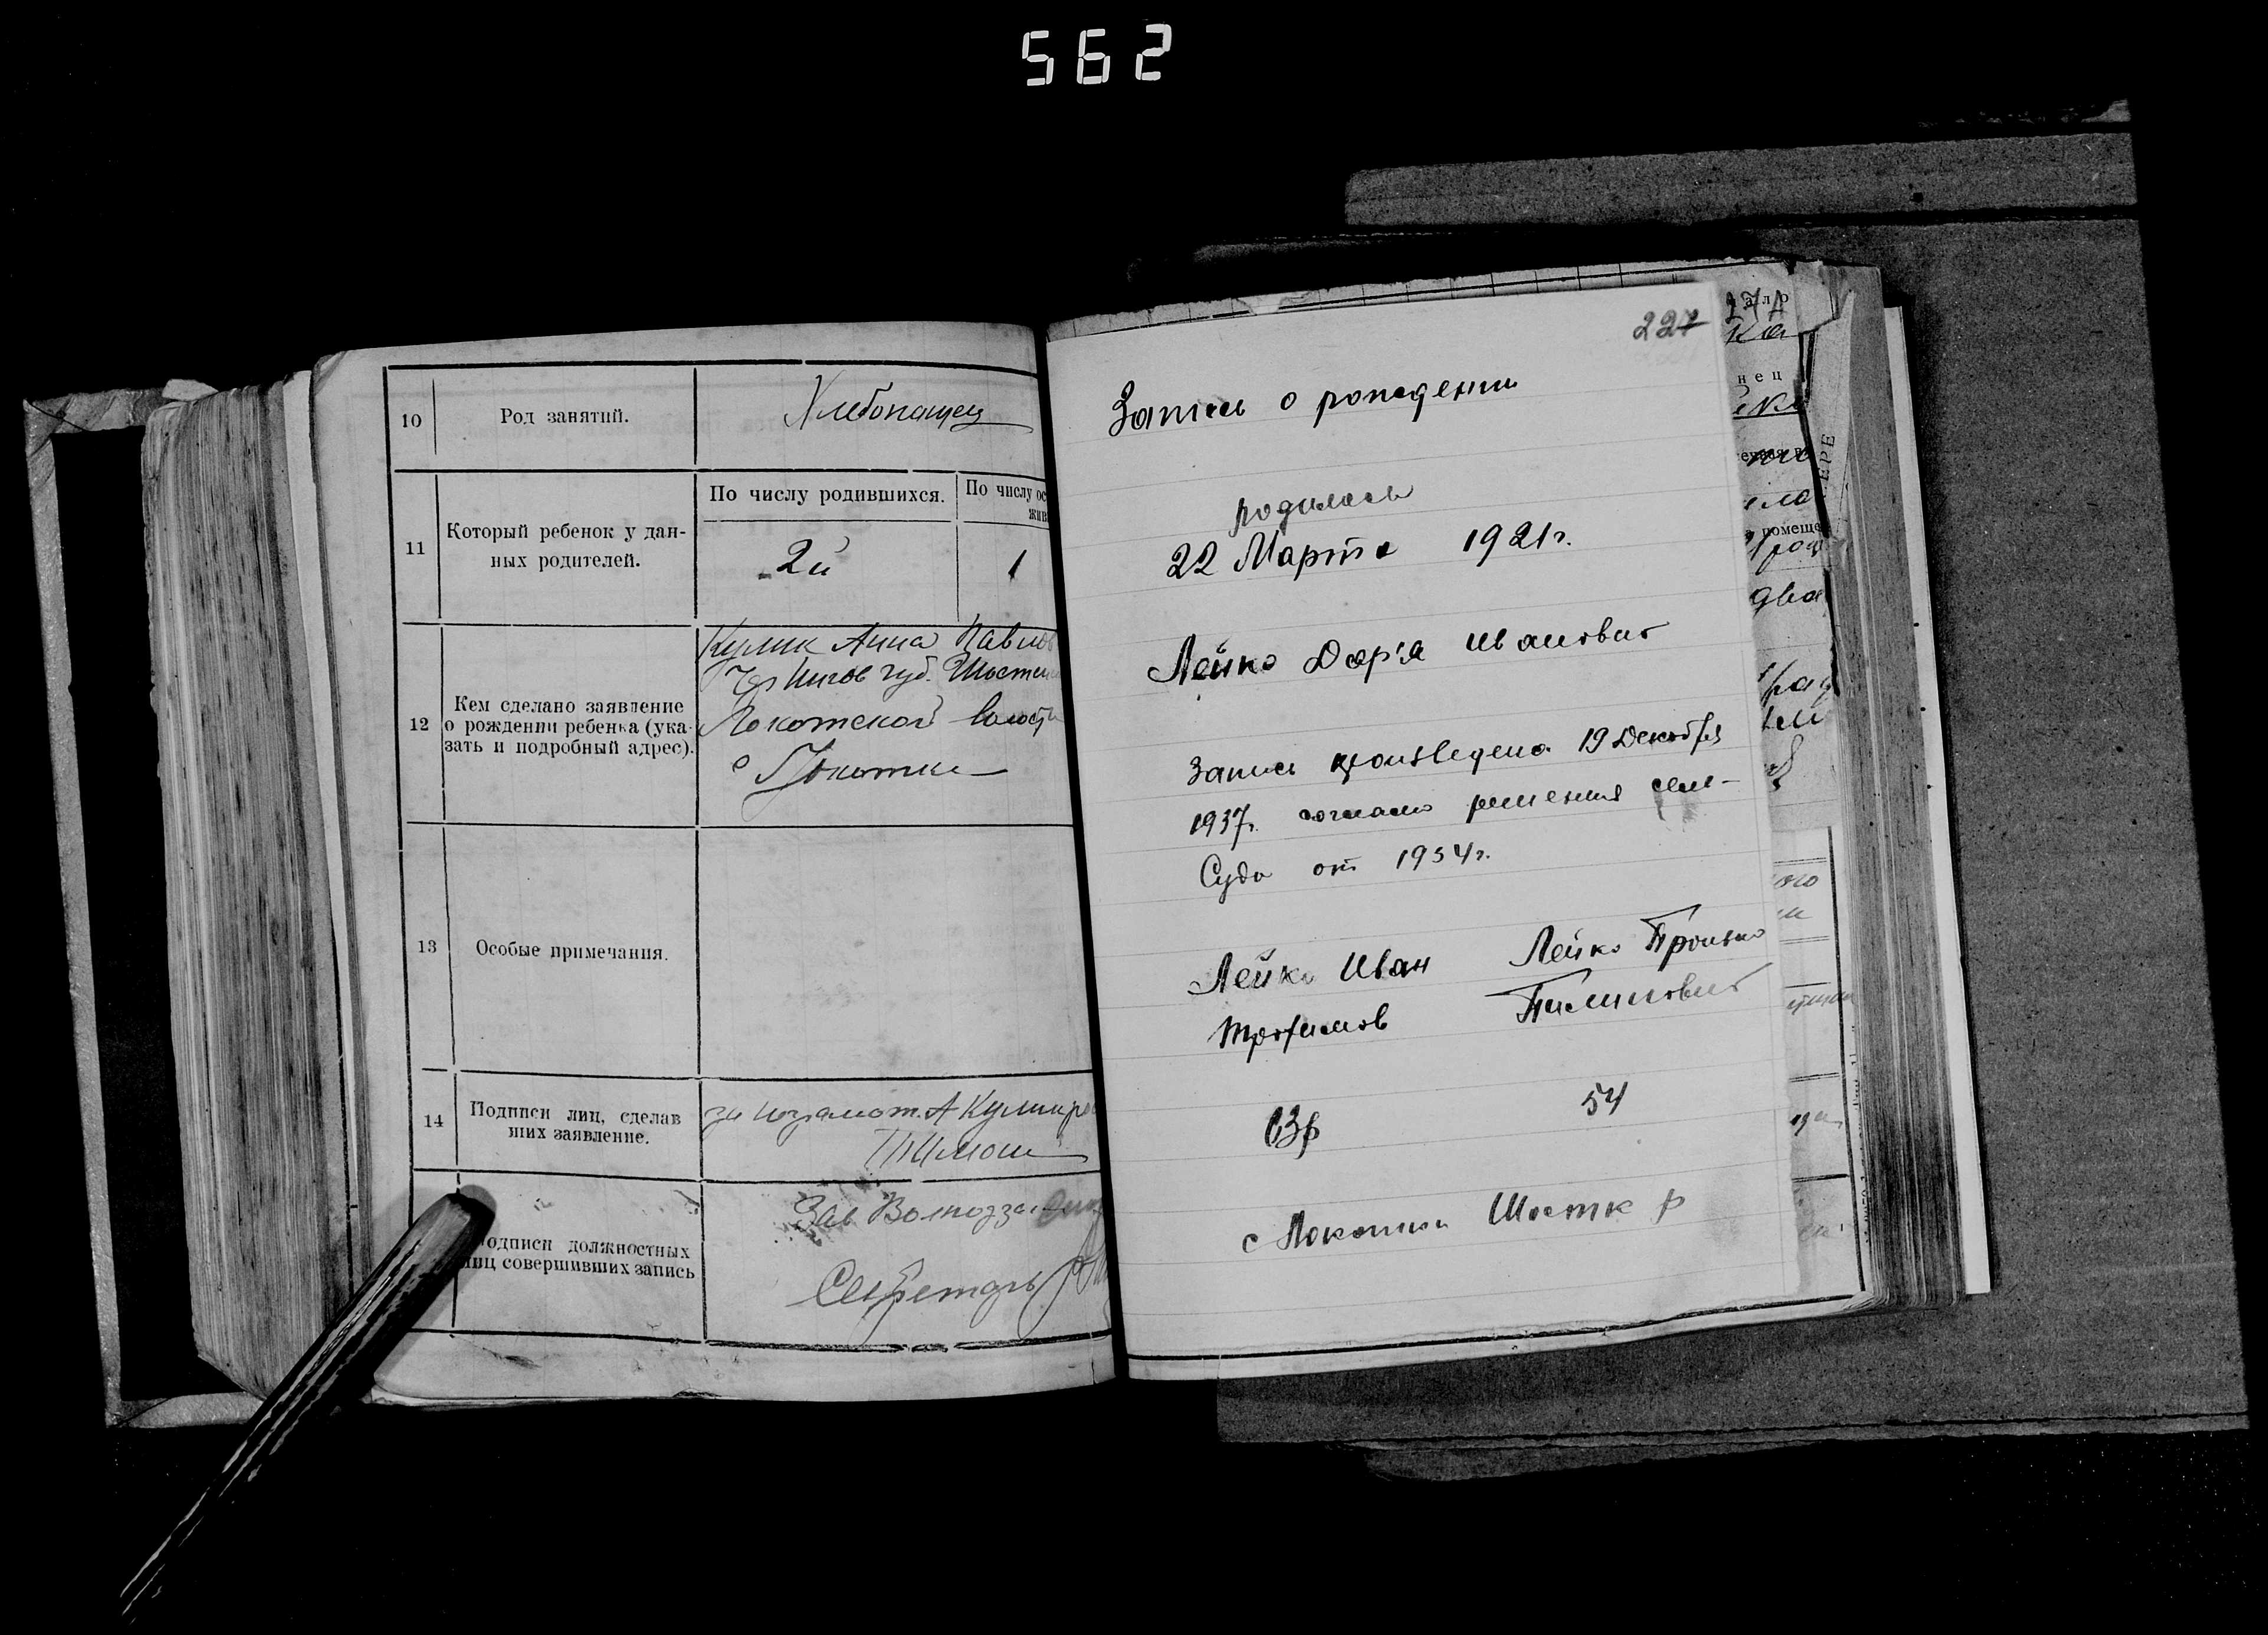 562
10 Род занятий. Хлебопашец
11 Который ребенок у дан-
ных родителей.
По числу родившихся. По числу ос
жив
2й 1
12 Кем сделано заявление
о рождении ребенка (ука-
зать и подробный адрес).
Кулик Анна Павлов
Чернигов губ. Шостен
Локотской волость
с Локотки
13 Особые примечания.
14 Подписи лиц, сделав
ших заявление.
за неграмот. А Кулик
одписи должностных
лиц совершивших запись
Зав
Секретарь
227
Запись о рождении
родилась
22 Марта 1921г.
Лейко Дар'я Иванович
Запись произведена 19 Декабря
1937г. согласно решения сель-
Суда от 1934г.
Лейко Иван Лейко
Трофимов
63р 54
с Локотки Шостк р
27А
ка
нец
помеще
два
ЕРЕ